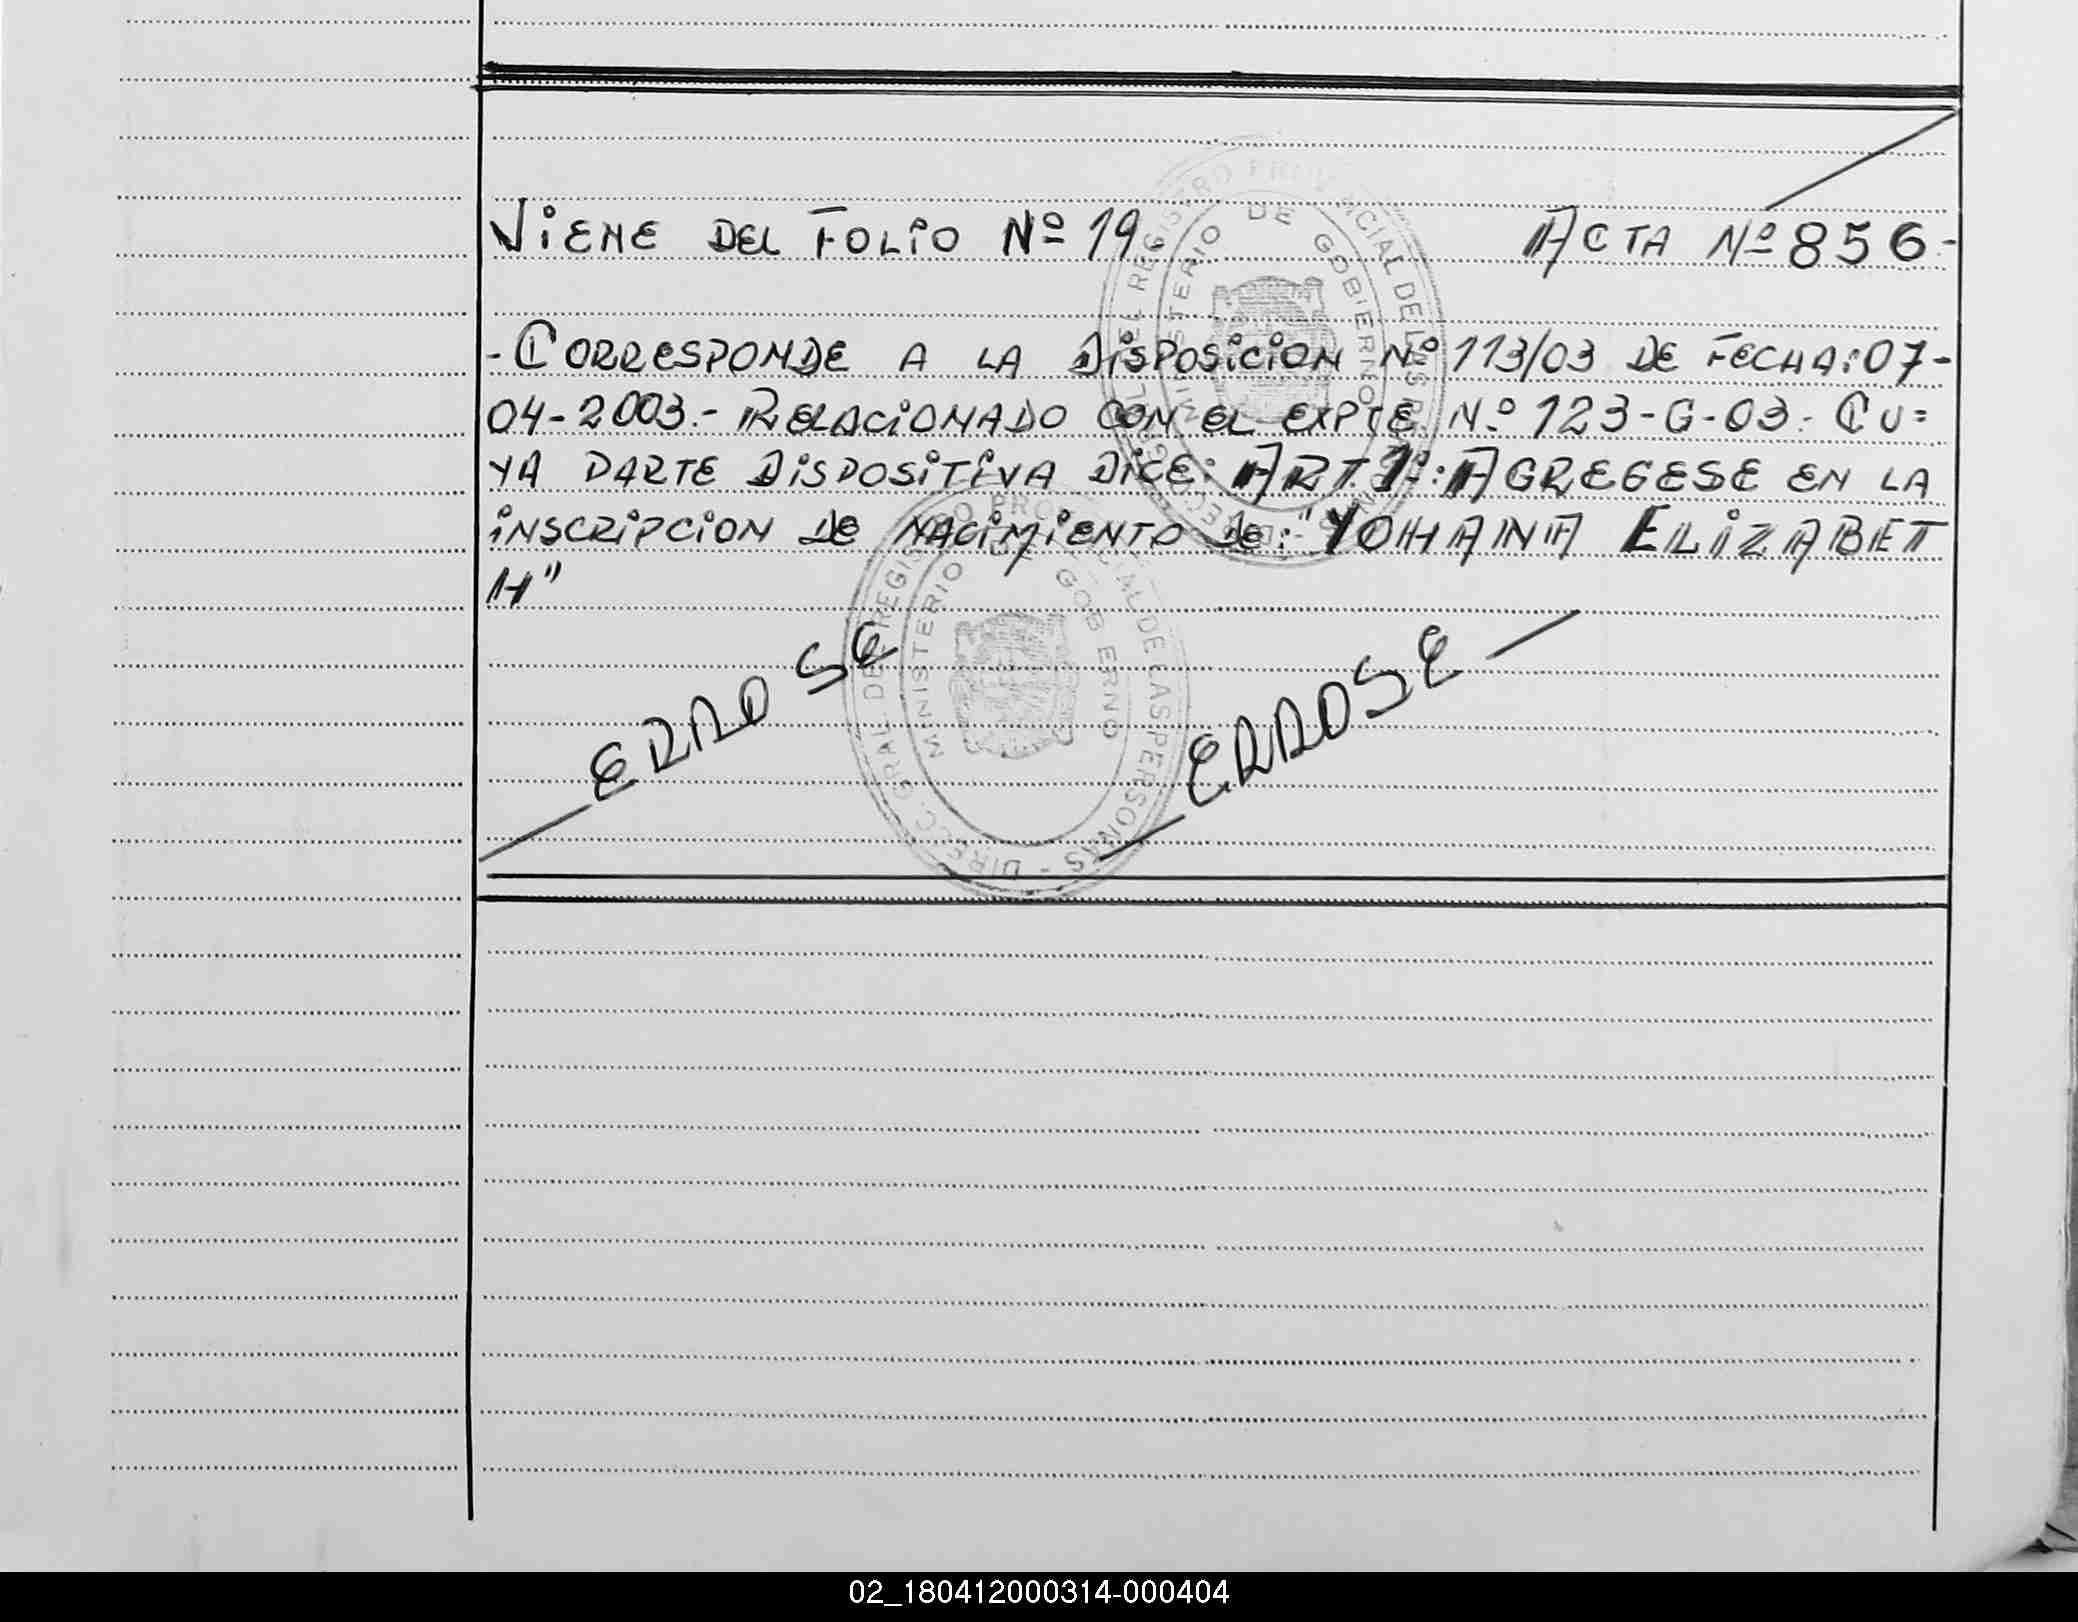 VIENE DEL FOLIO Nº 19. ACTA Nº 856-
-CORRESPONDE A LA DISPOSICION Nº 113/03 DE FECHA: 07-
04-2003.- RELACIONADO CON EL EXPTE. Nº 123-G-03. CU=
YA PARTE DISPOSITIVA DICE: ART. 1º: AGREGESE EN LA
INSCRIPCION DE NACIMIENTO DE: "YOHANA ELIZABET
H"
ERROSE
ERROSE
DIRECC. GRAL. DEL REGISTRO PROVINCIAL DE LAS PERSONAS -
MINISTERIO DE GOBIERNO
DIRECC. GRAL. DEL REGISTRO PROVINCIAL DE LAS PERSONAS -
MINISTERIO DE GOBIERNO
02_180412000314-000404